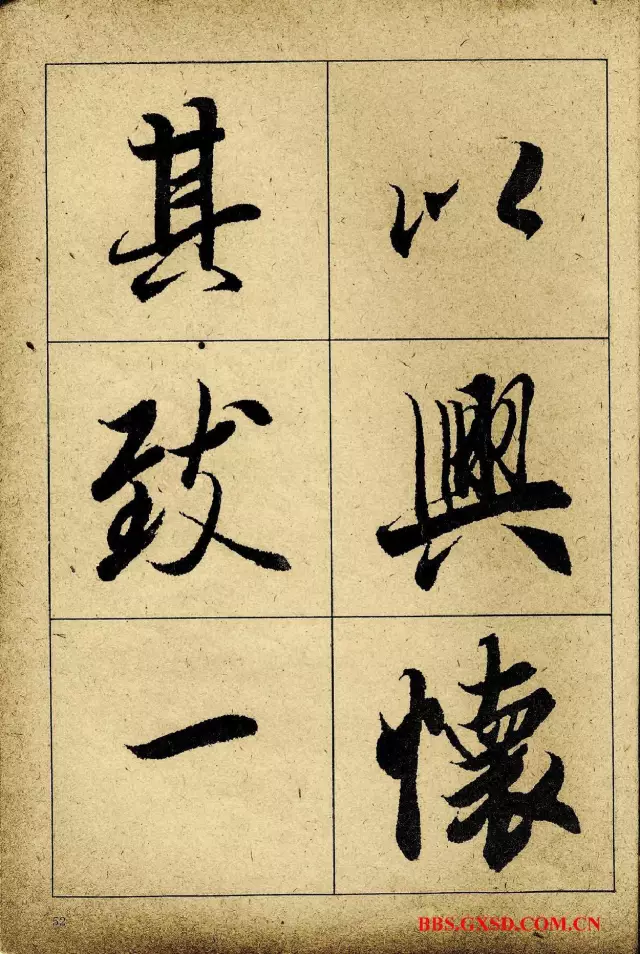 以興懷
其致一
52
BBS.GXSD.COM.CN